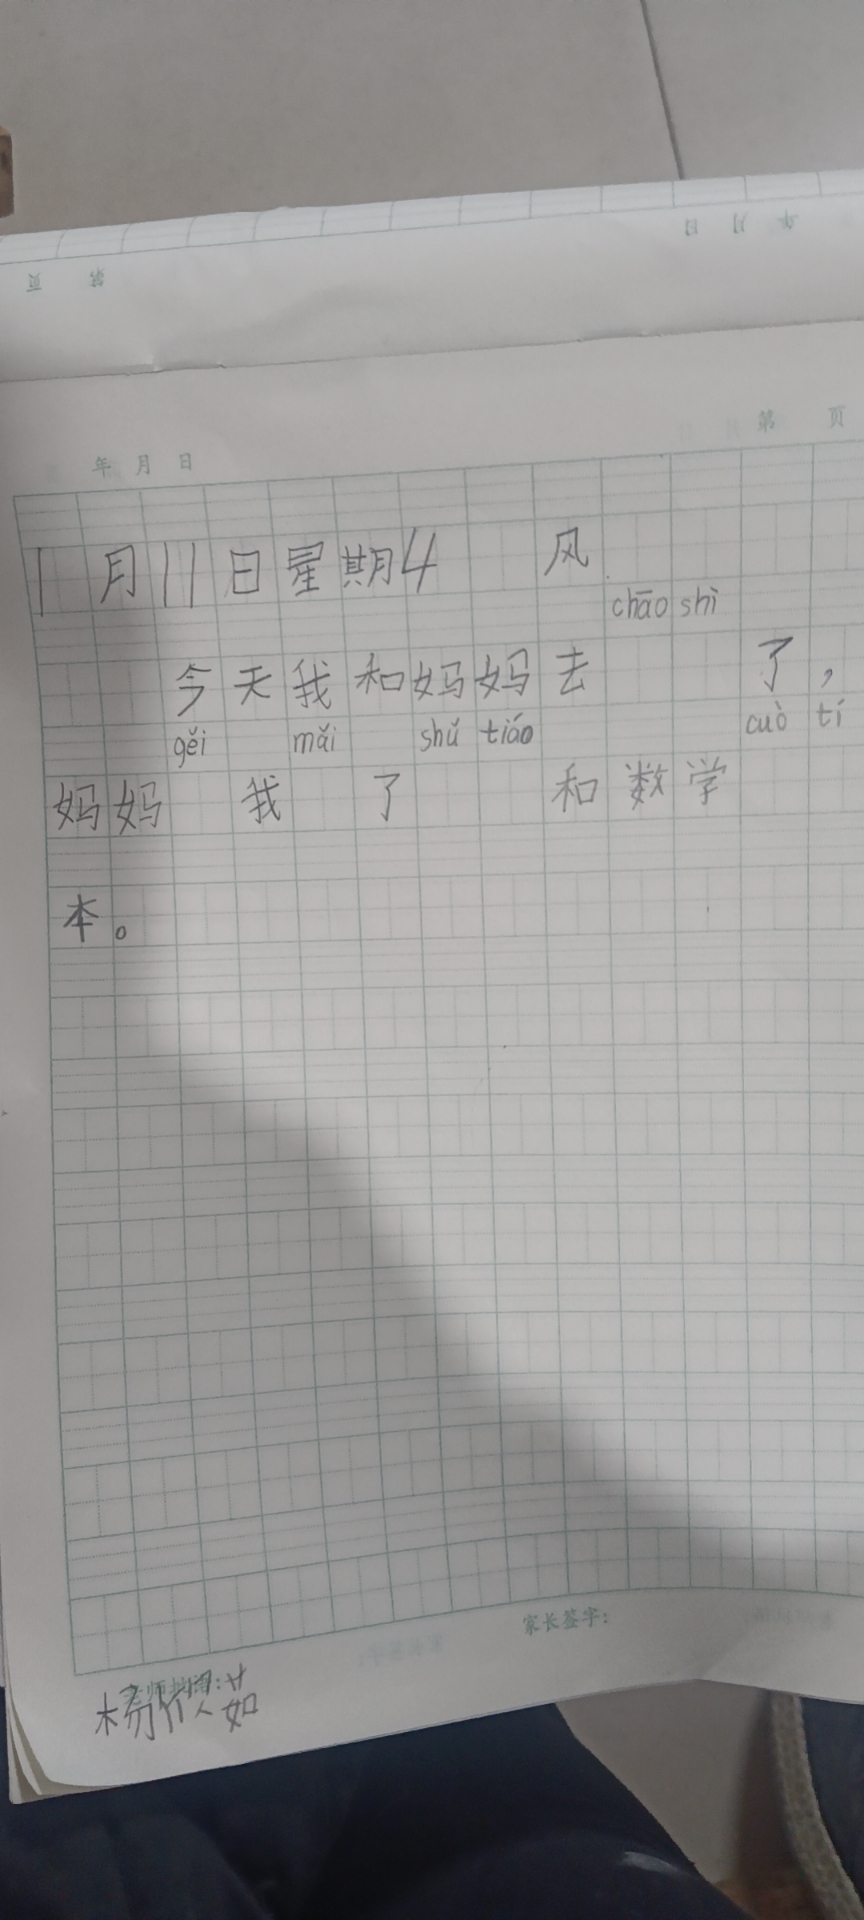 年 月 日
第 页
年 月 日
第 页
1月11日星期4 风
chāo shì
今天我和妈妈去 了，
gěi mǎi shǔ tiáo cuò tí
妈妈 我 了 和数学
本。
家长签字：
老师批阅：